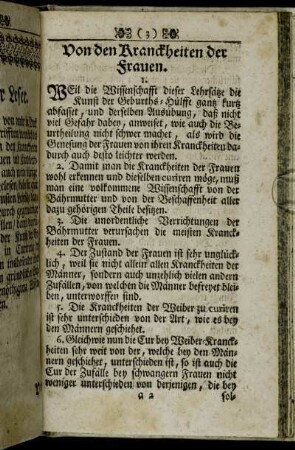 (3)
Von den Kranckheiten der
Frauen.
1.
WEil die Wissenschafft dieser Lehrsätze die
Kunst der Geburths-Hülffe gantz kurtz
abfasset, und derselben Ausübung, daß nicht
viel Gefahr dabey, anweiset, wie auch die Be-
urtheilung nicht schwer machet, als wird die
Genesung der Frauen von ihren Kranckheiten da-
durch auch desto leichter werden.
2. Damit man die Kranckheiten der Frauen
wohl erkennen und dieselben curiren möge, muß
man eine vollkommene Wissenschafft von der
Bährmutter und von der Beschaffenheit aller
dazu gehörigen Theile besitzen.
3. Die unordentliche Verrichtungen der
Bährmutter verursachen die meisten Kranck-
heiten der Frauen.
4. Der Zustand der Frauen ist sehr unglück-
lich, weil sie nicht allein allen Kranckheiten der
Männer, sondern auch unzehlich vielen andern
Zufällen, von welchen die Männer befreyet blei-
ben, unterworffen sind.
5. Die Kranckheiten der Weiber zu curiren
ist sehr unterschieden von der Art, wie es bey
den Männern geschiehet.
6. Gleichwie nun die Cur bey Weiber-Kranck-
heiten sehr weit von der, welche bey den Män-
nern geschiehet, unterschieden ist, so ist auch die
Cur der Zufälle bey schwangern Frauen nicht
weniger unterschieden von derjenigen, die bey
a 2 sol-